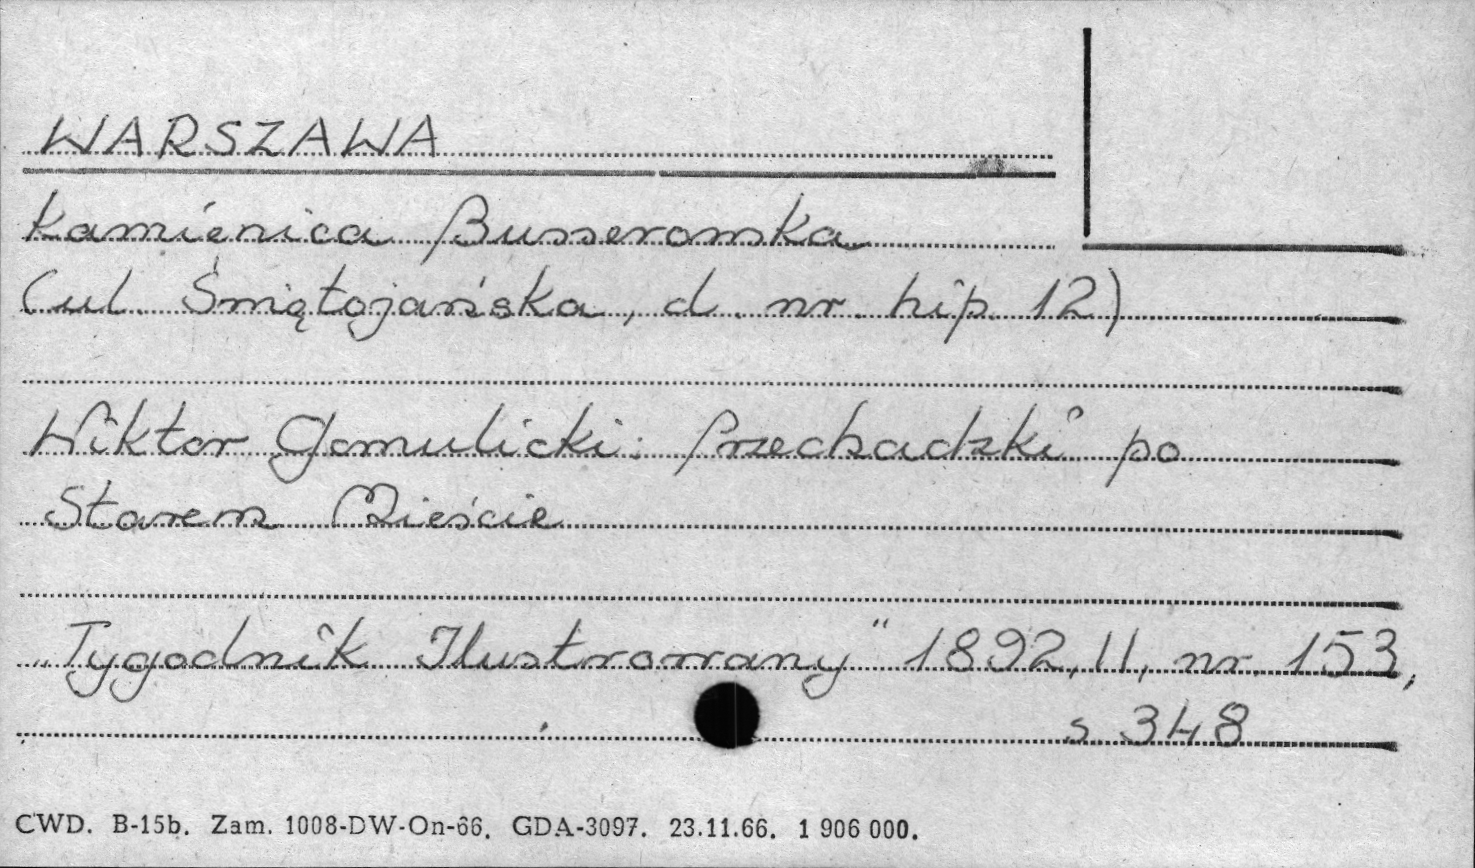 WARSZAWA
Kamienica Busserowska
(ul. Świętojańska, d. nr. hip. 12)
Wiktor Gomulicki: Przechadzki po
Starem Mieście
„Tygodnik Ilustrowany" 1892, II, nr 153,
s 348
CWD. B-15b. Zam. 1008-DW-On-66. GDA-3097. 23.11.66. 1 906 000.